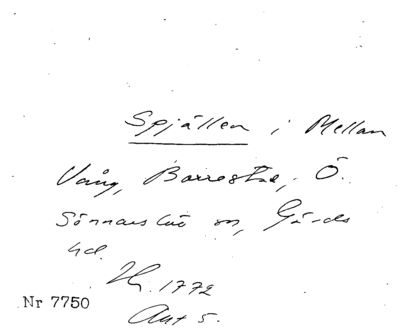 Spjällen i Mellan
Vång, Borrestad, Ö.
Sönnarslöv sn, Gärds
hd.
1772
Nr 7750
Akt 5.